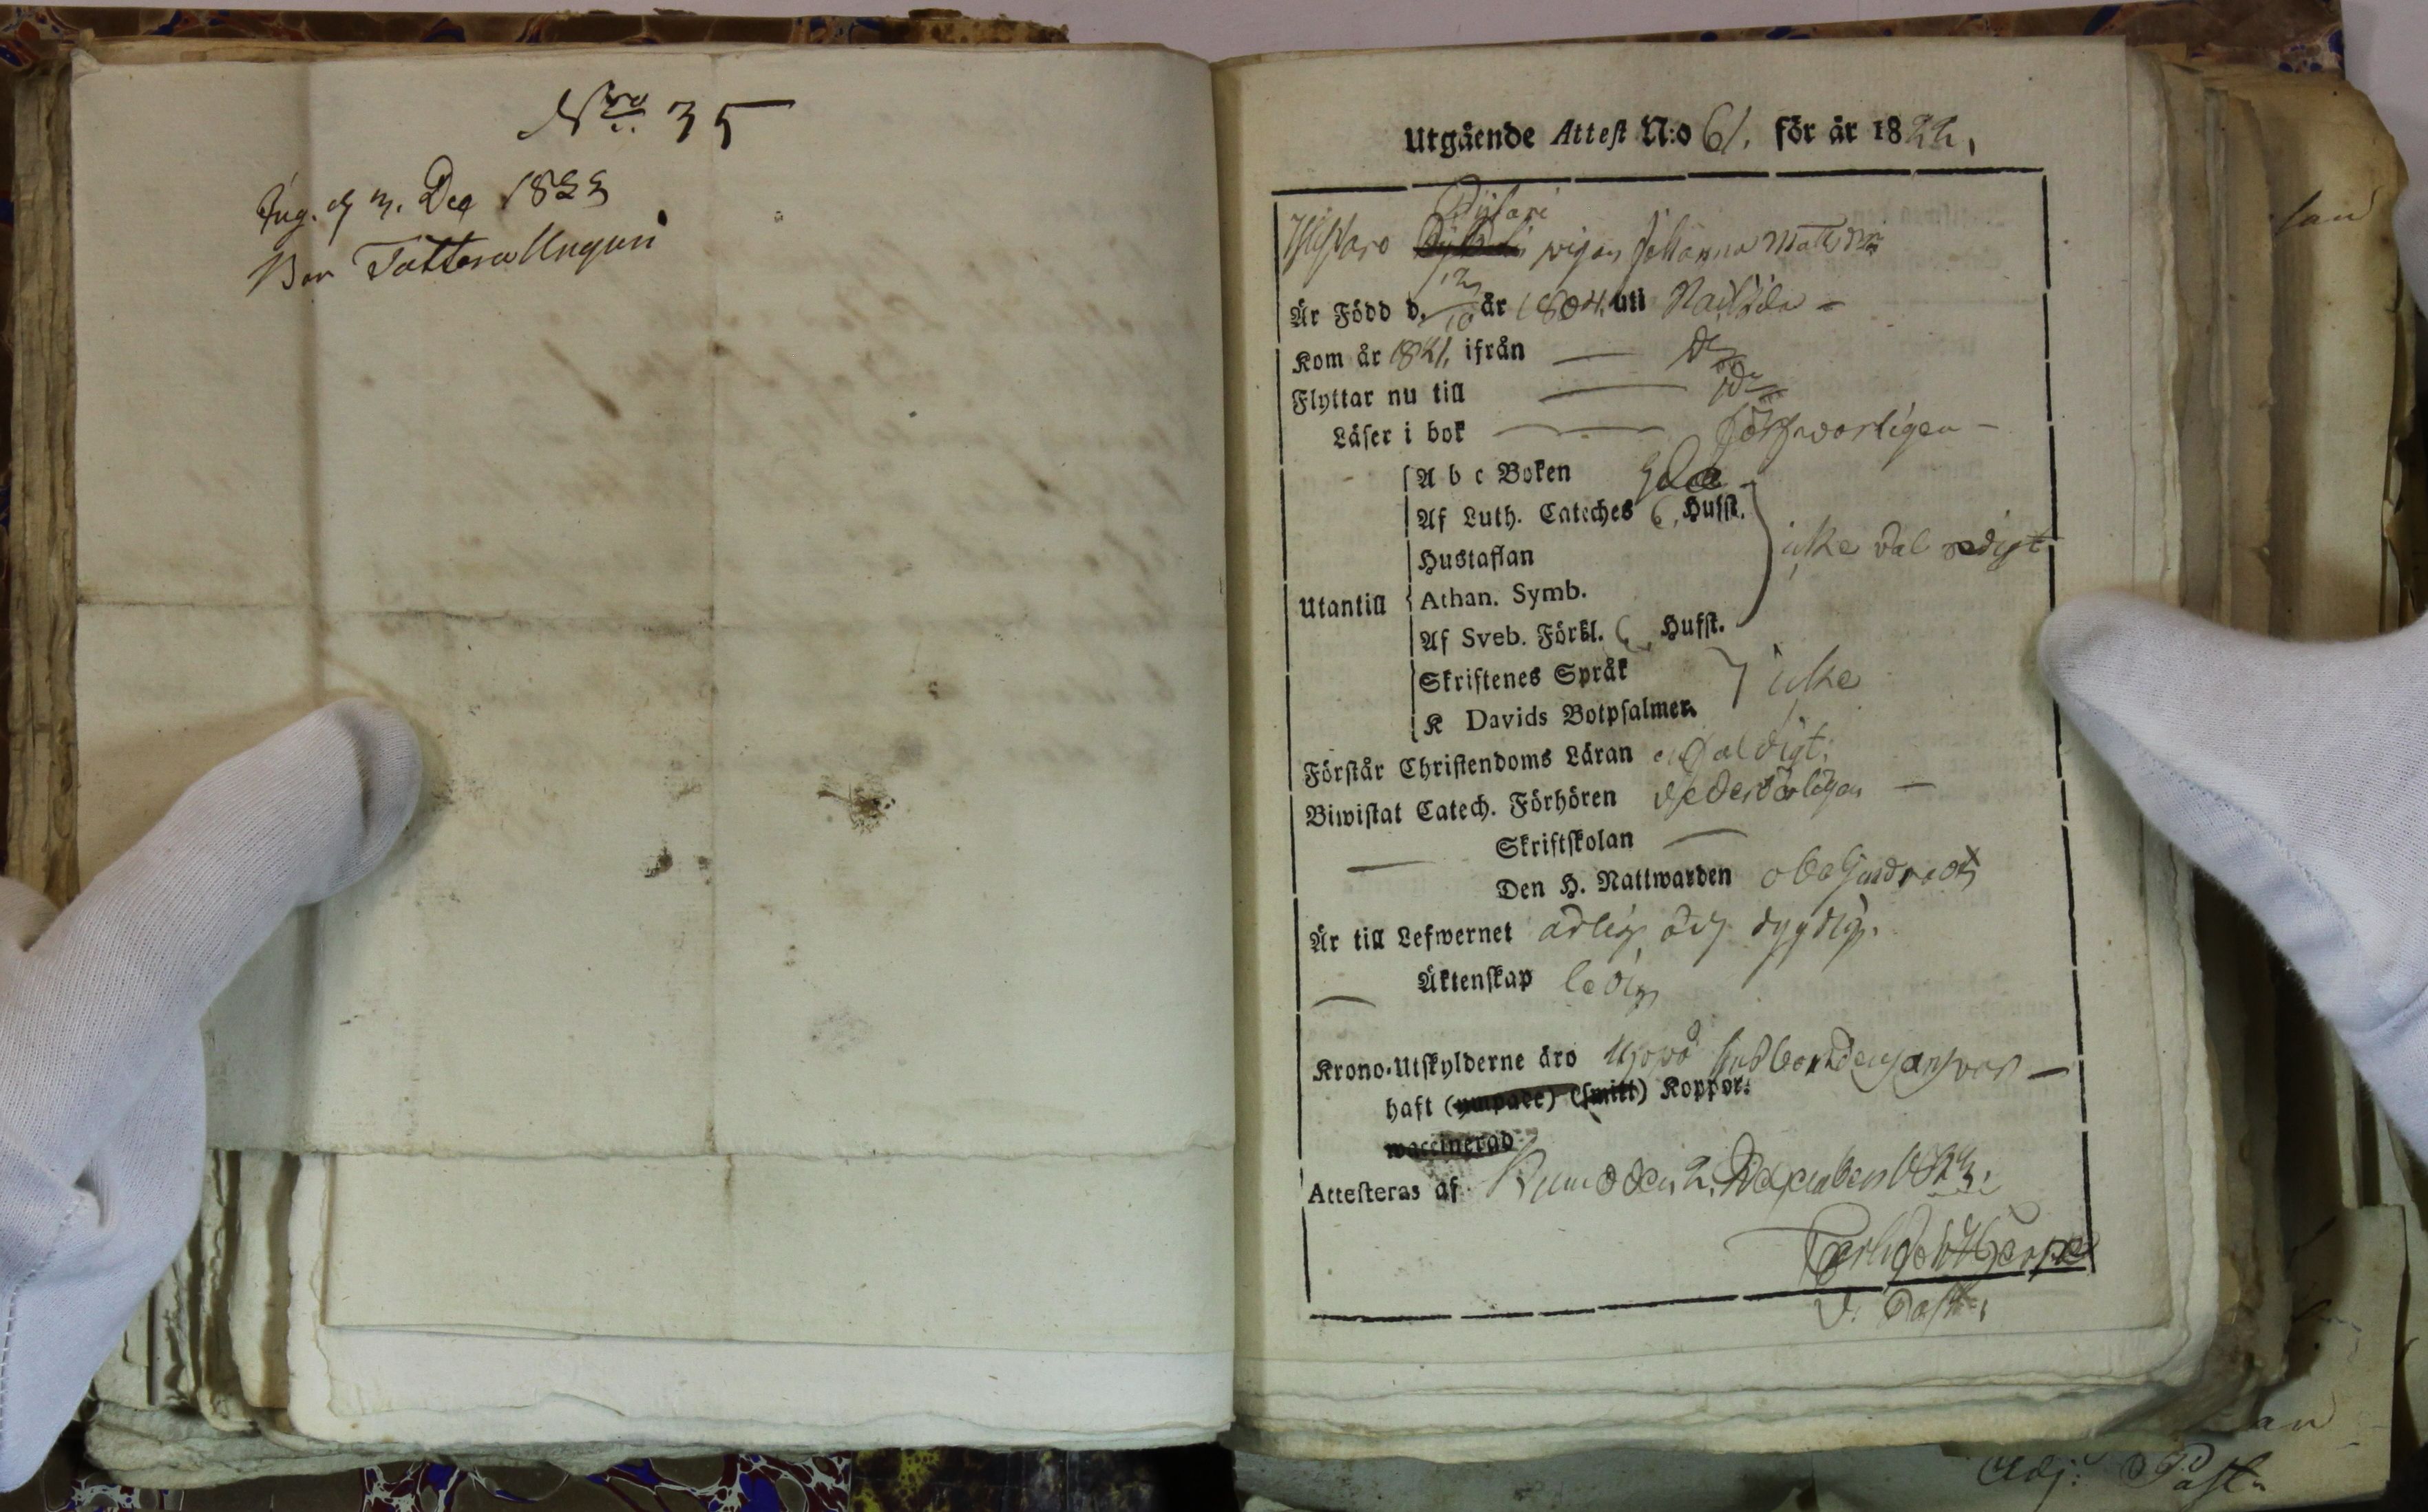 Nro 35
Ing. d 3. Dec 1823
Bor Tattara Unguri
Utgående Attest N:o 61. för år 1822,
pigan Johanna Matts dr
Är Född d. 12/10 år 1804. uti
Kom år 1821, ifrån — Do
Flyttar nu till — Do
Läser i bok — försvarligen —
A b c Boken
Af Luth. Catéches 6, Hufst.
Hustaflan
icke väl redigt
Utantill
Athan. Symb.
Af Sveb. Förkl. 6, Hufst.
Skriftenes Språk
icke
K Davids Botpsalmer.
Förstår Christendoms Läran enfaldigt.
Biwistat Catech. Förhören vederbörligen —
— Skriftskolan —
Den H. Nattwarden obehindradt
Är till Lefwernet ärlig och dygdig.
— Äktenskap ledig
Krono-Utskylderne äro husbondens ansvar —
haft (ympade) (smitt) Koppor.
waccinerad
Attesteras af Kumo den 2. December 1823.
V. Past.
Adj. Past.